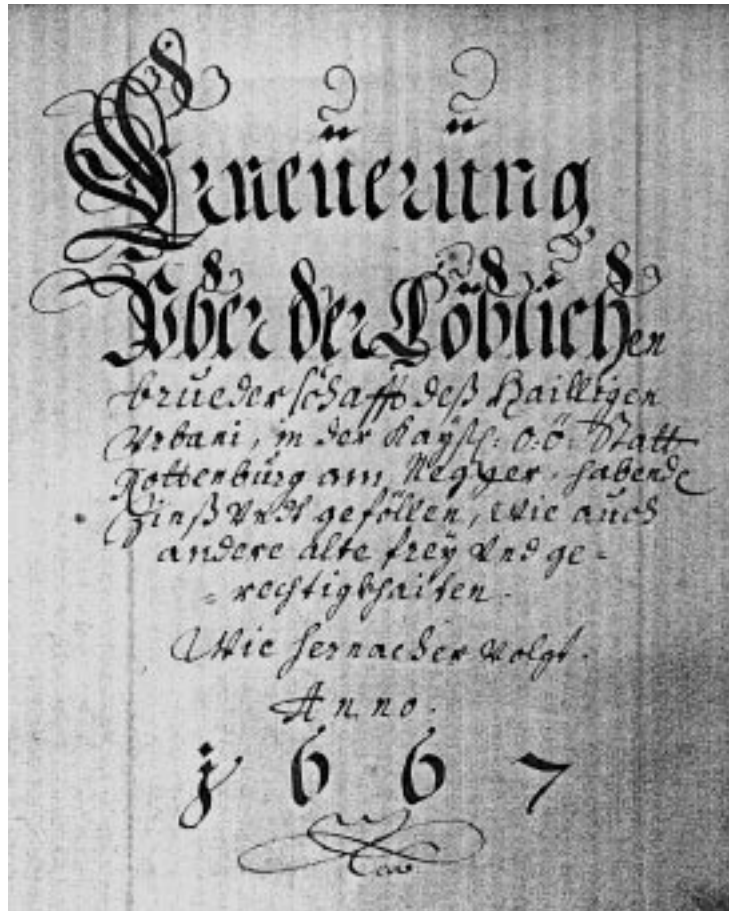 Erneüerüng
Vber der Löblichen
brueder schafft deß Hailligen
Vrbani, in der Kaÿßl: O: Ö: Statt
Rottenbürg am Negger, habende
Zinß Vndt geföllen, wie auch
andere alte freÿ Vnd ge-
rechtigkhaiten.
Wie hernacher Volgt.
Anno.
1667